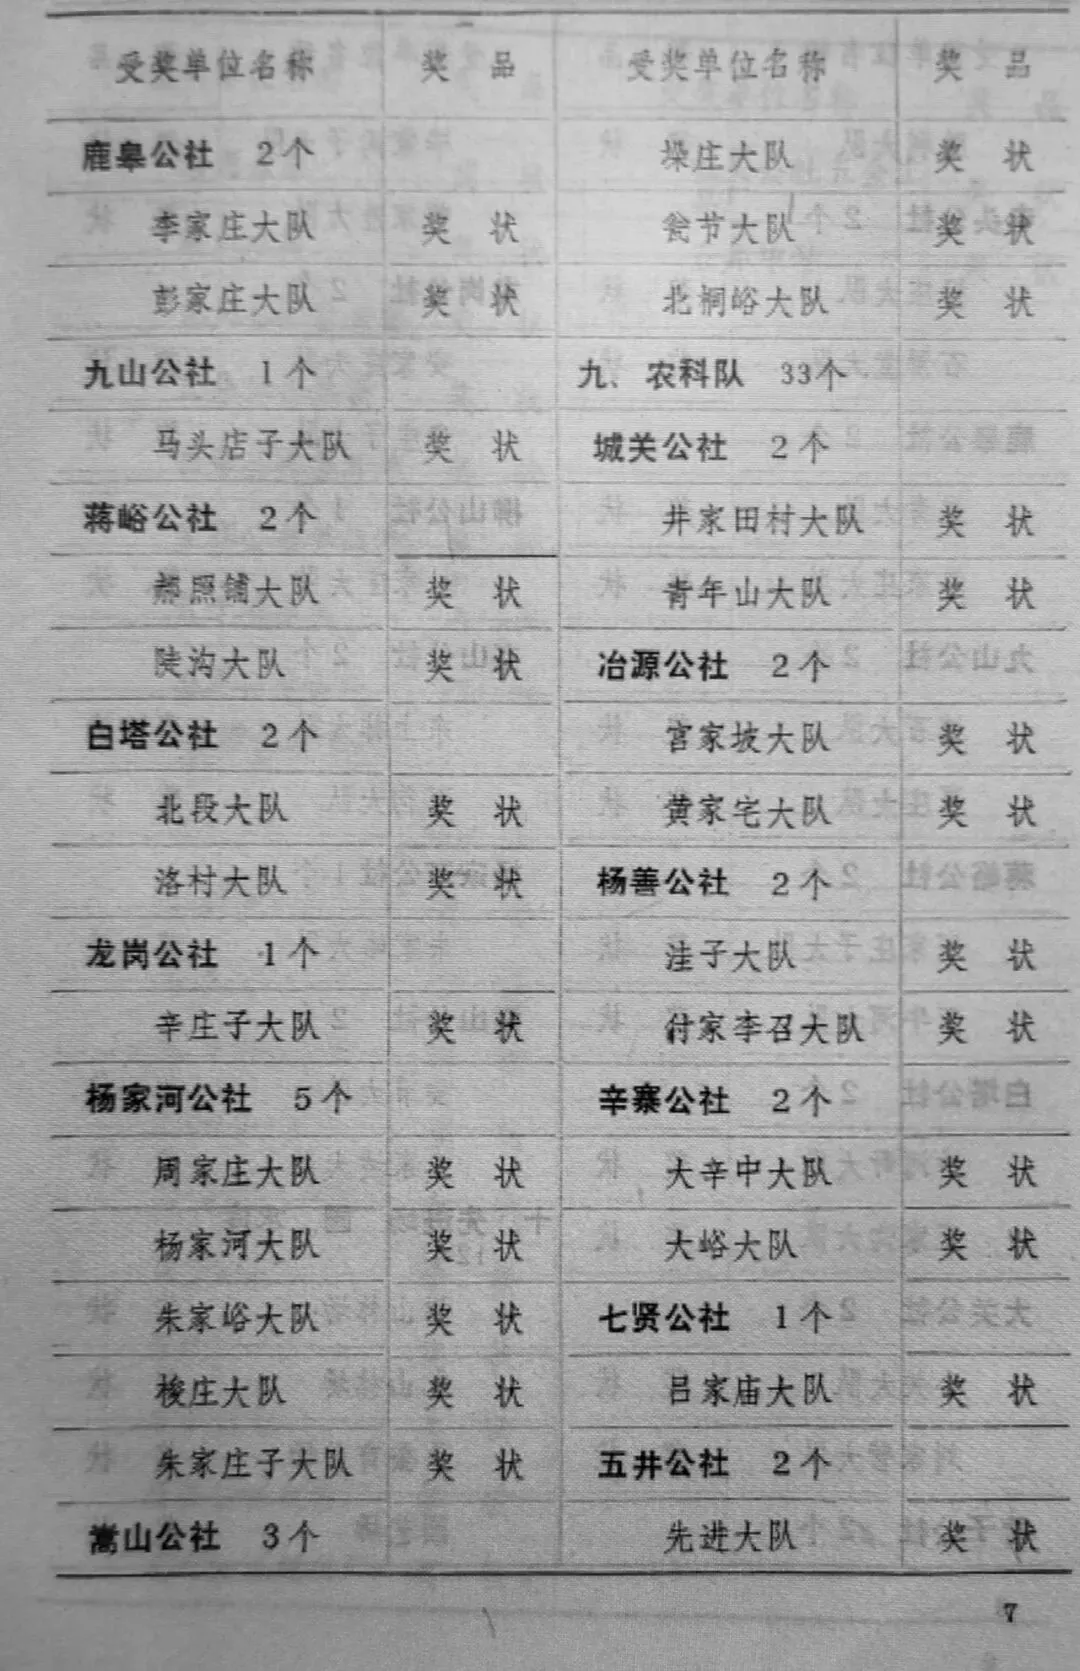 受奖单位名称 奖 品
鹿皋公社 2个
李家庄大队 奖 状
彭家庄大队 奖 状
九山公社 1个
马头店子大队 奖 状
蒋峪公社 2个
郝照铺大队 奖 状
陡沟大队 奖 状
白塔公社 2个
北段大队 奖 状
洛村大队 奖 状
龙岗公社 1个
辛庄子大队 奖 状
杨家河公社 5个
周家庄大队 奖 状
杨家河大队 奖 状
朱家峪大队 奖 状
梭庄大队 奖 状
朱家庄子大队 奖 状
嵩山公社 3个
受奖单位名称 奖 品
垛庄大队 奖 状
瓮节大队 奖 状
北桐峪大队 奖 状
九、农科队 33个
城关公社 2个
井家田村大队 奖 状
青年山大队 奖 状
冶源公社 2个
宫家坡大队 奖 状
黄家宅大队 奖 状
杨善公社 2个
洼子大队 奖 状
付家李召大队 奖 状
辛寨公社 2个
大辛中大队 奖 状
大峪大队 奖 状
七贤公社 1个
吕家庙大队 奖 状
五井公社 2个
先进大队 奖 状
7